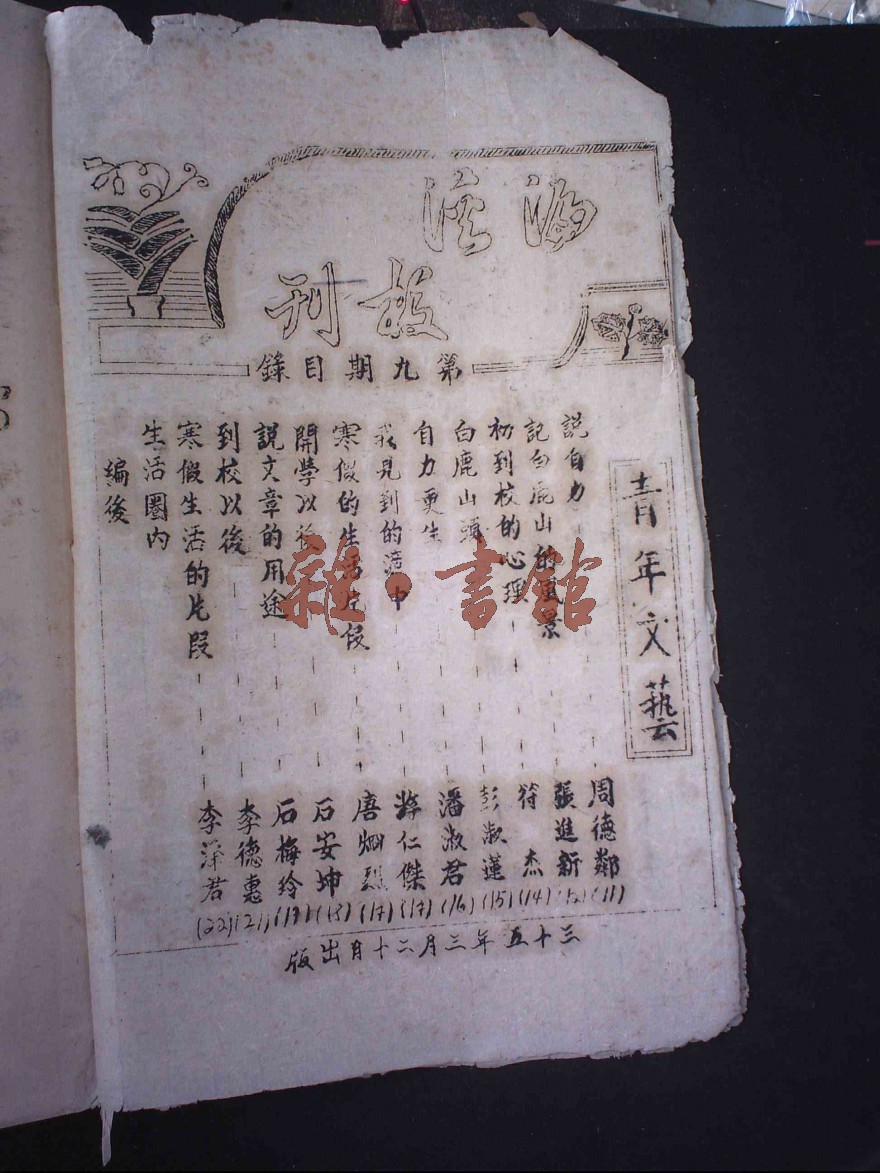 刊
第九期目錄
青年文藝
説自力 周德鄰 (11)
記白鹿山的風景 張進新 (12)
初到校的心理 符杰 (14)
白鹿山頭 彭淑蓮 (15)
自力更生 潘淑君 (16)
我見到的 中 游仁傑 (17)
寒假的生活片段 唐炯烈 (17)
開學以後 石安坤 (18)
說文章的用途 石梅玲 (19)
到校以後 李德惠 (21)
寒假生活的片段 李澤君 (22)
生活圈內
編後
三十五年三月二十日出版
雜·書館